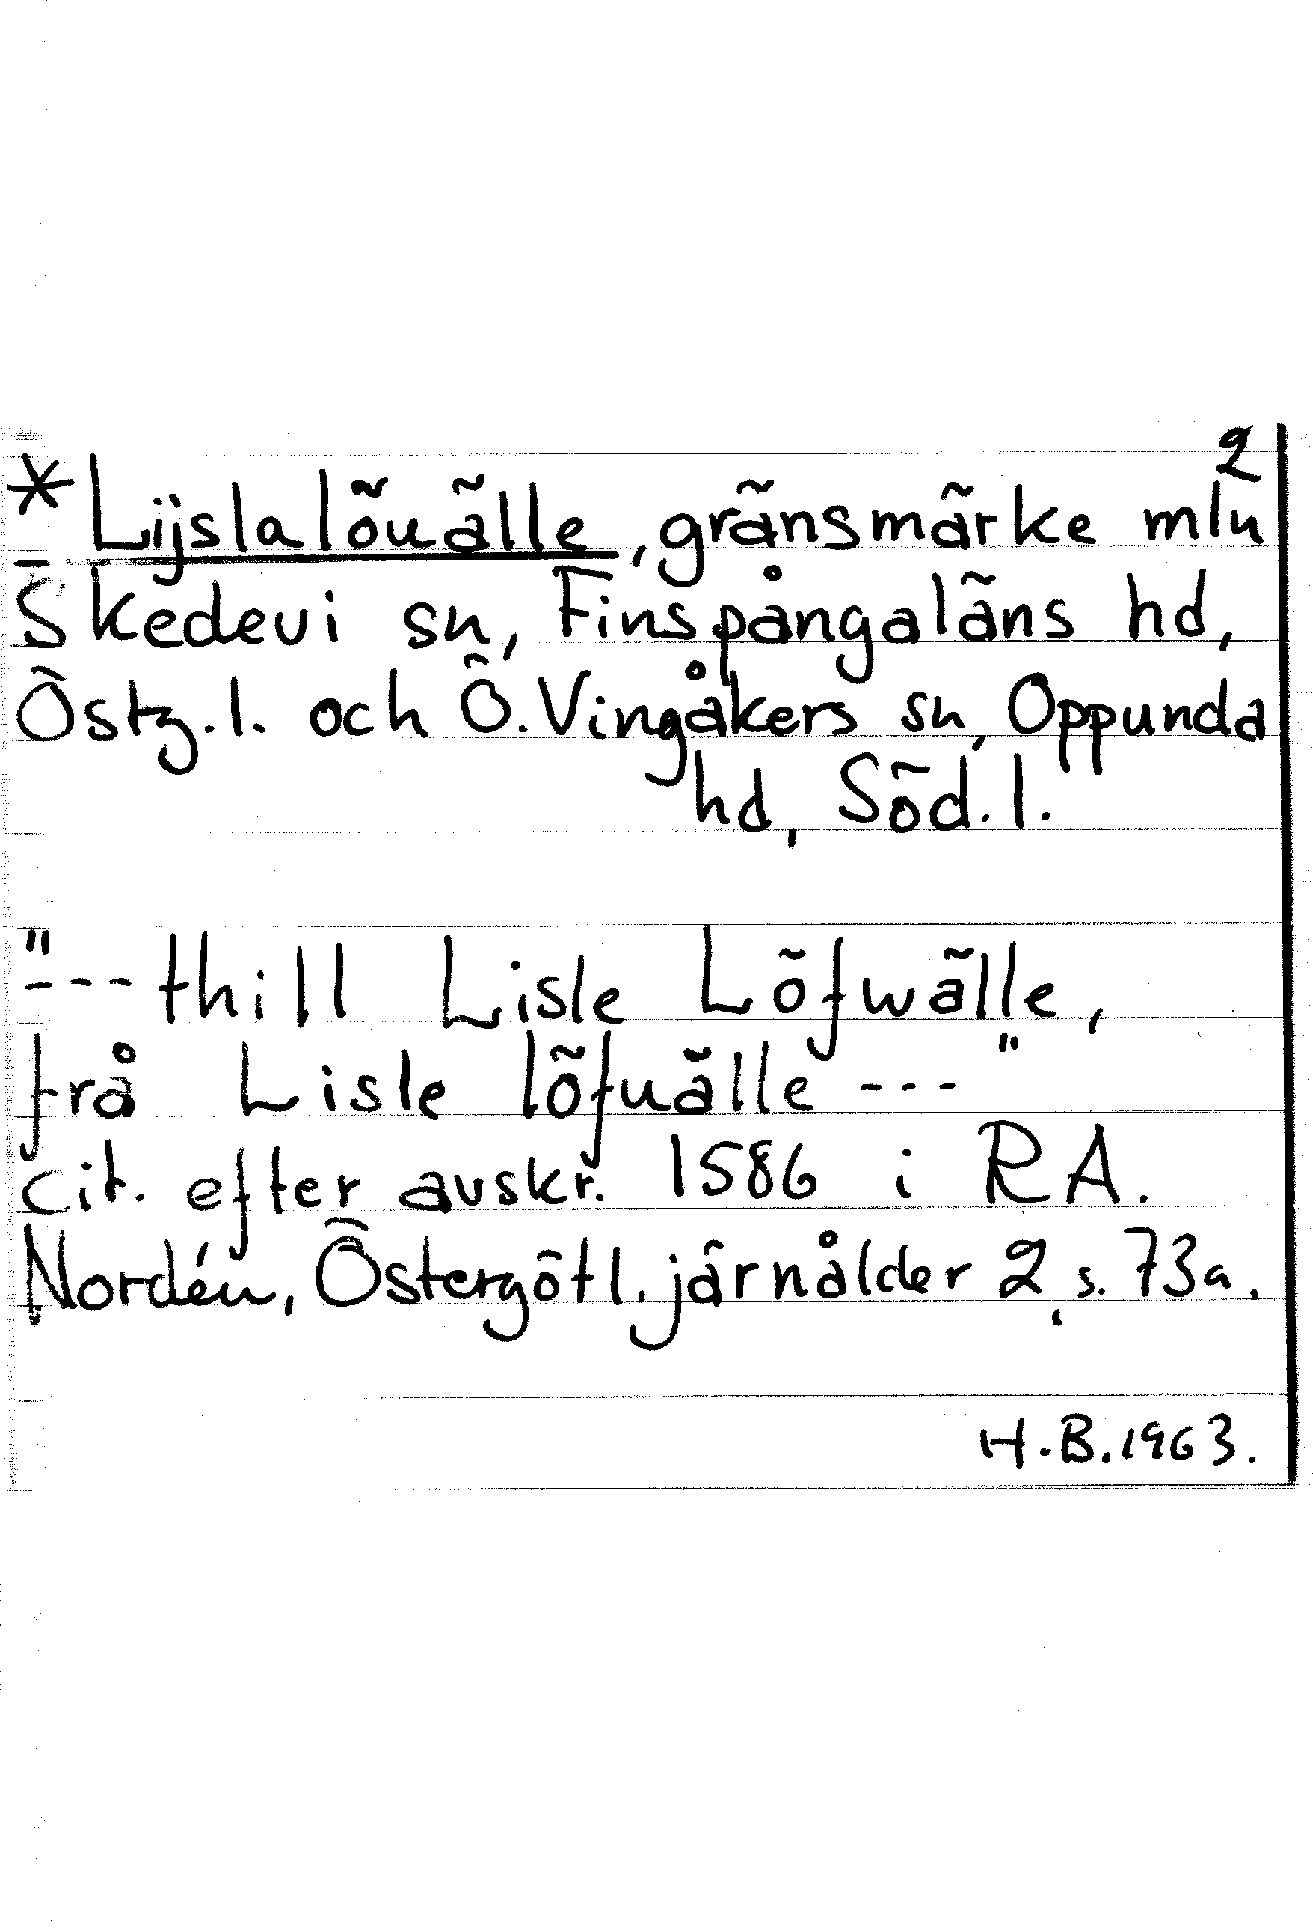 2
*Lijslalöuälle, gränsmärke mln
Skedevi sn, Finspångaläns hd,
Östg.l. och Ö. Vingåkers sn, Oppunda
hd, Söd.l.
"--- thill Lisle Löfwälle,
frå Lisle löfuälle ---"
cit. efter avskr. 1586 i RA.
Nordén, Östergötl. järnålder 2, s. 73a.
H.B. 1963.